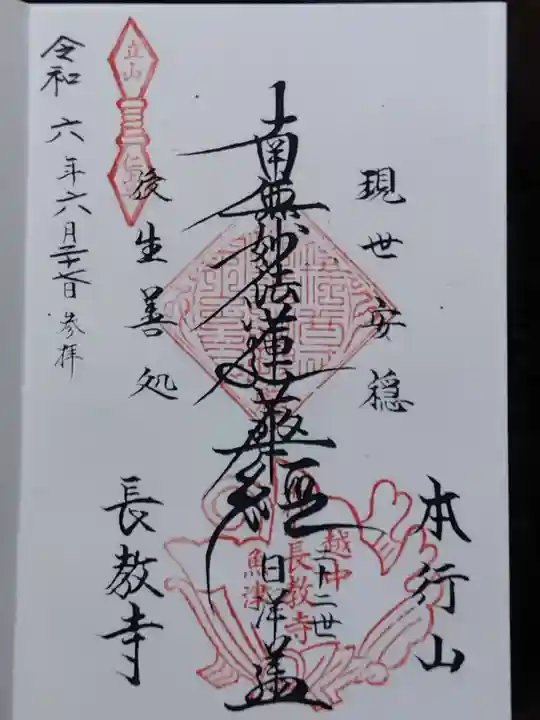 現世安穏
本行山
南無妙法蓮華経
二十二世
日洋
後生善処
長教寺
令和六年六月二十六日参拝
立山
越中
長教寺
魚津